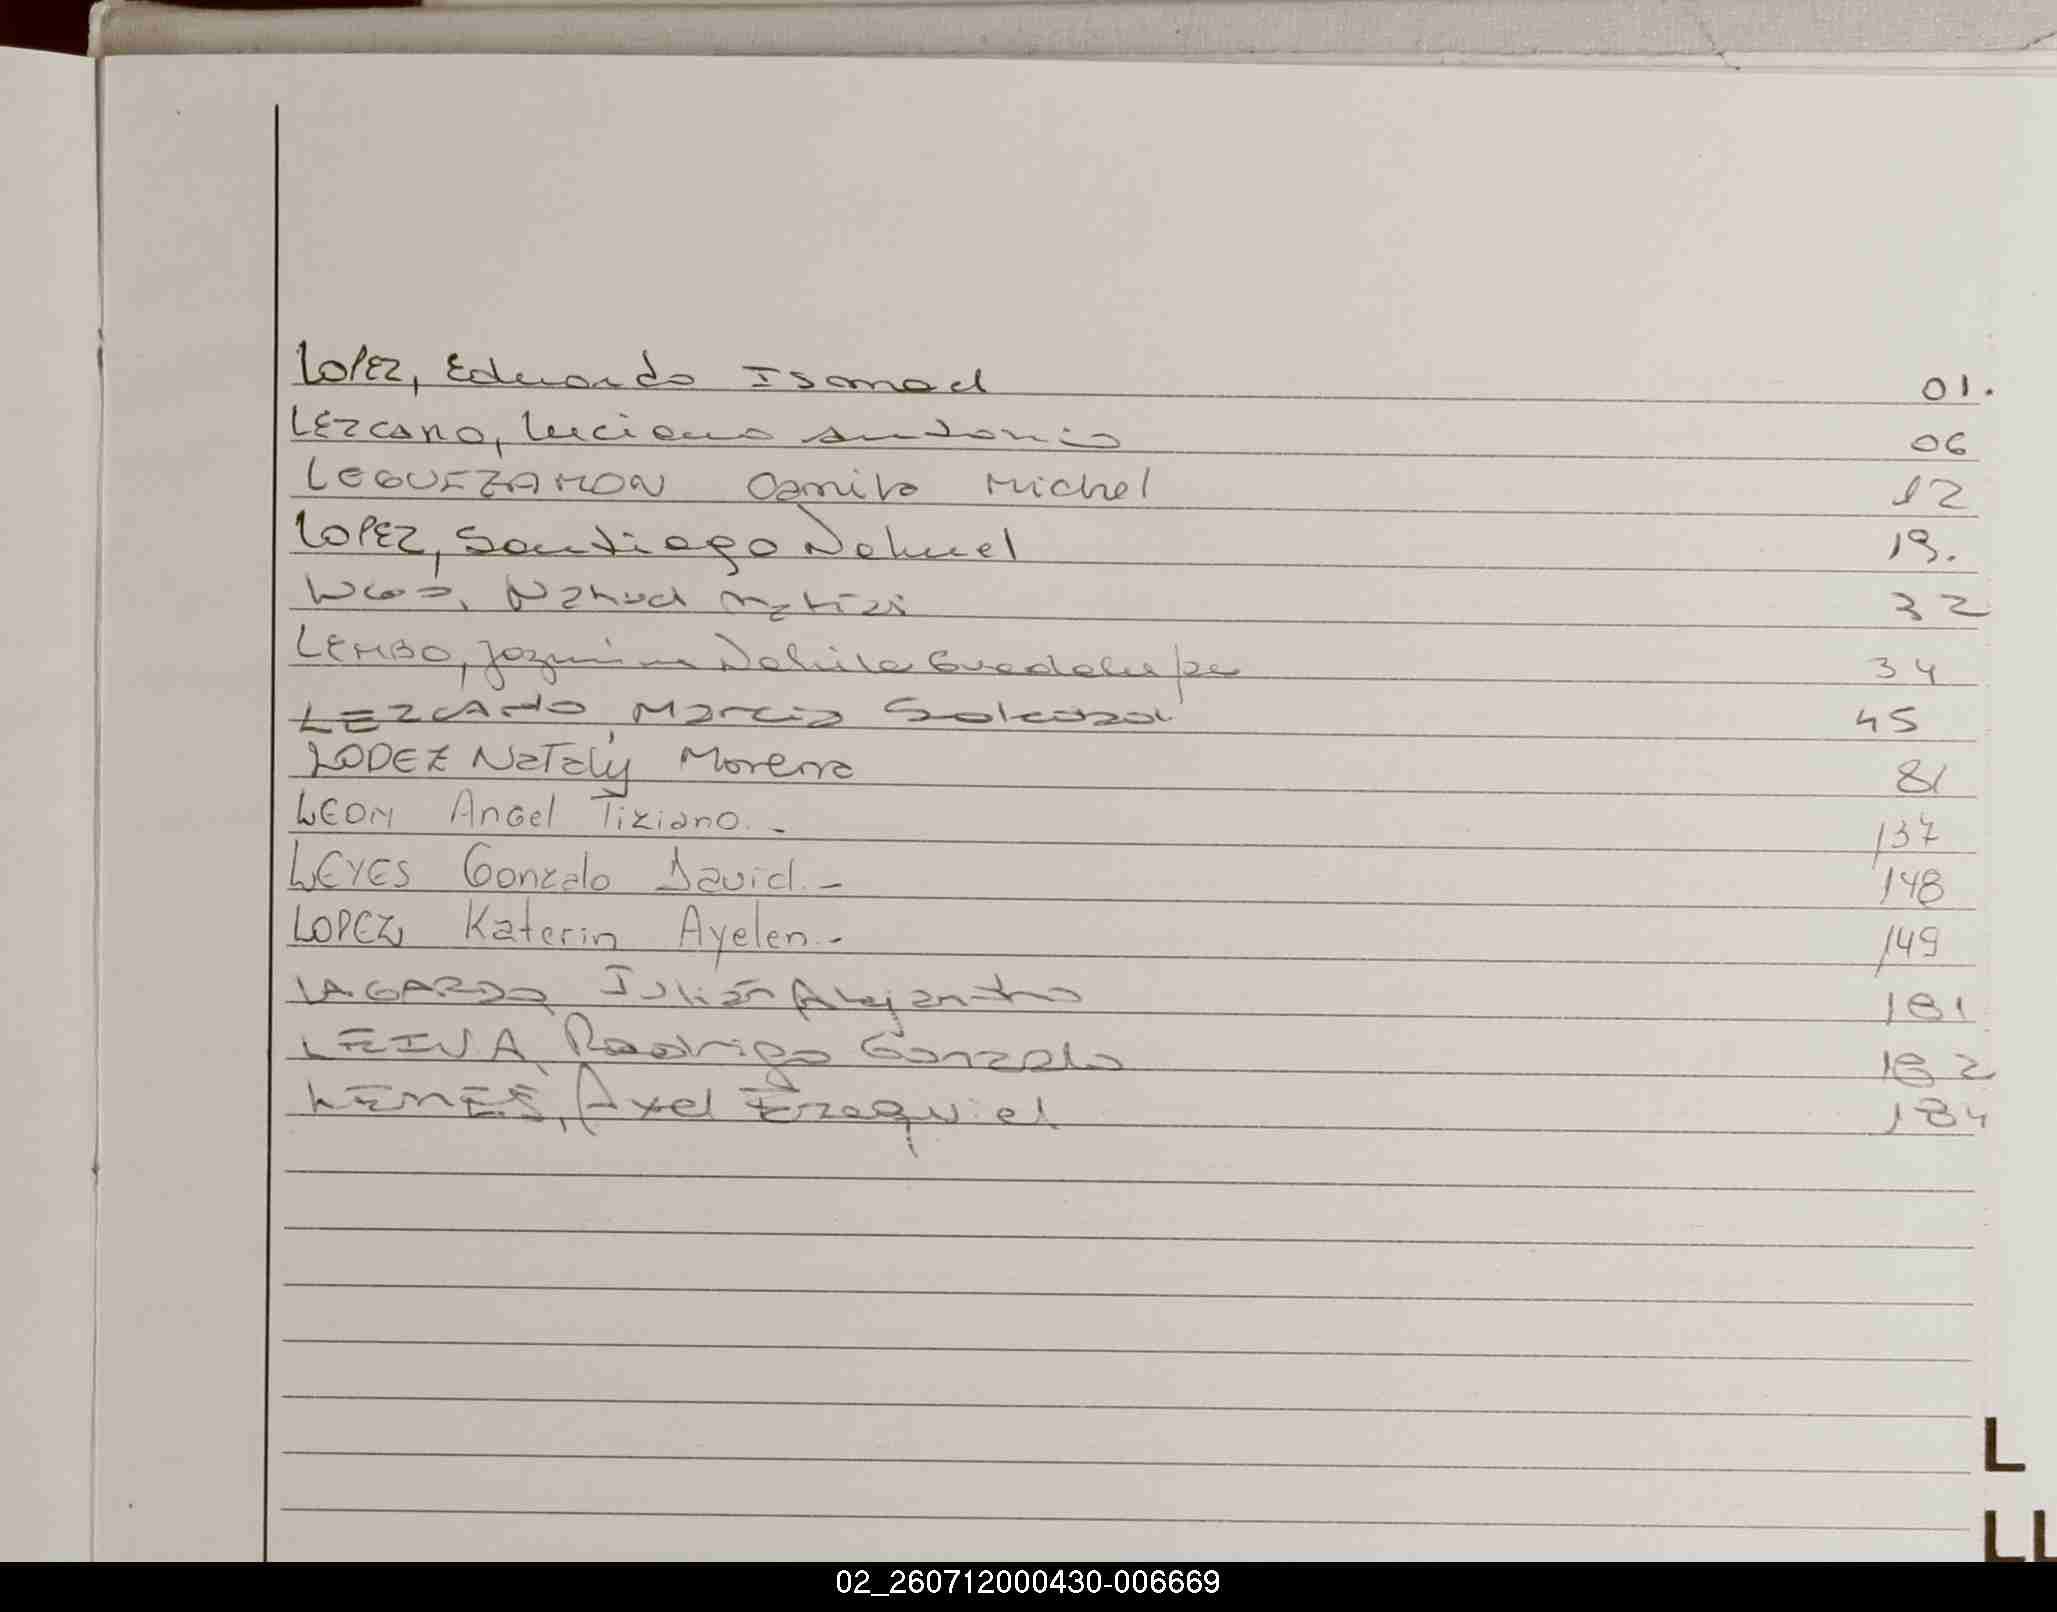 LOPEZ, Eduardo Ismael 01.
LEZCANO, Luciano Antonio 06
LEGUIZAMON Camila Michel 12
LOPEZ, Santiago Nahuel 19.
Nahuel Matias 32
LEMBO, Jazmin Nahila Guadalupe 34
LEZCANO, Marcia Soledad 45
LOPEZ Nataly Morena 81
LEON Angel Tiziano.- 137
LEYES Gonzalo David.- 148
LOPEZ, Katerin Ayelen.- 149
LAGARDE, Julián Alejandro 181
LEIVA, Rodrigo Gonzalo 182
LEMES, Axel Ezequiel 184
L
LL
02_260712000430-006669